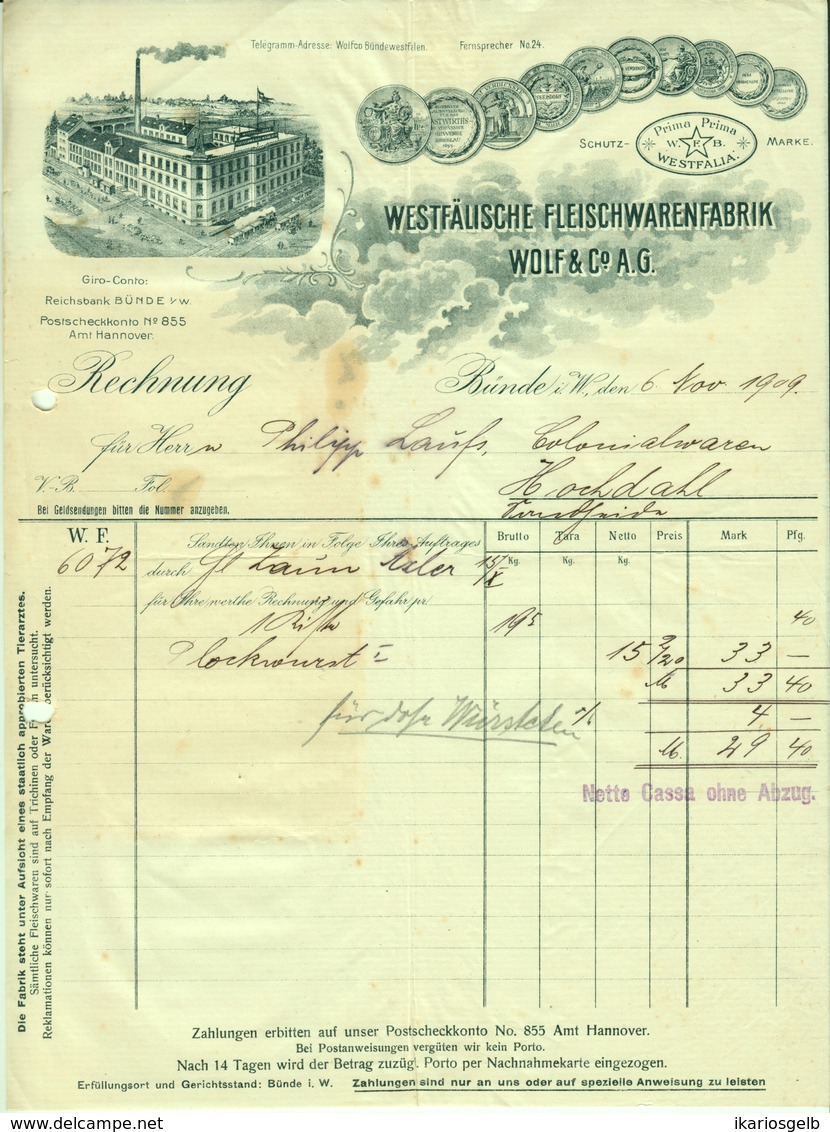 Telegramm-Adresse: Wolfco Bündewestfalen. Fernsprecher No. 24.
SCHUTZ- Prima Prima MARKE.
W.F.B.
WESTFALIA.
WESTFÄLISCHE FLEISCHWARENFABRIK
WOLF & Co A.G.
Giro-Conto:
Reichsbank BÜNDE i/W.
Postscheckkonto No 855
Amt Hannover.
Rechnung
Bünde i. W., den 6. Nov. 1909.
für Herrn Philipp Laufs, Colonialwaren
Hochdahl
V.-B. Fol.
Bei Geldsendungen bitten die Nummer anzugeben.
W. F. Sandten Ihnen in Folge Ihres Auftrages Brutto Tara Netto Preis Mark Pfg.
Kg. Kg. Kg.
6072 durch
für Ihre werthe Rechnung und Gefahr pr.
1 Kiste 19 5 40
Plockwurst I 15 2/20 33 —
M 33 40
für dose Würstchen ./. 4 —
M. 29 40
Netto Cassa ohne Abzug.
Die Fabrik steht unter Aufsicht eines staatlich approbierten Tierarztes.
Sämtliche Fleischwaren sind auf Trichinen oder untersucht.
Reklamationen können nur sofort nach Empfang der Ware berücksichtigt werden.
Zahlungen erbitten auf unser Postscheckkonto No. 855 Amt Hannover.
Bei Postanweisungen vergüten wir kein Porto.
Nach 14 Tagen wird der Betrag zuzügl. Porto per Nachnahmekarte eingezogen.
Erfüllungsort und Gerichtsstand: Bünde i. W. Zahlungen sind nur an uns oder auf spezielle Anweisung zu leisten
www.delcampe.net
ikariosgelb